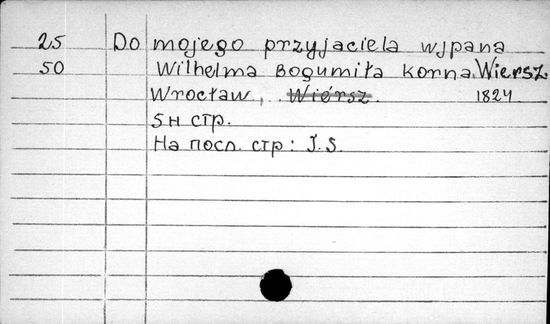 25 Do mojego przyjaciela wjpana
50 Wilhelma Bogumiła Korna, Wiersz.
Wrocław, Wiersz. 1824
5н стр.
На посл. стр: J.S.